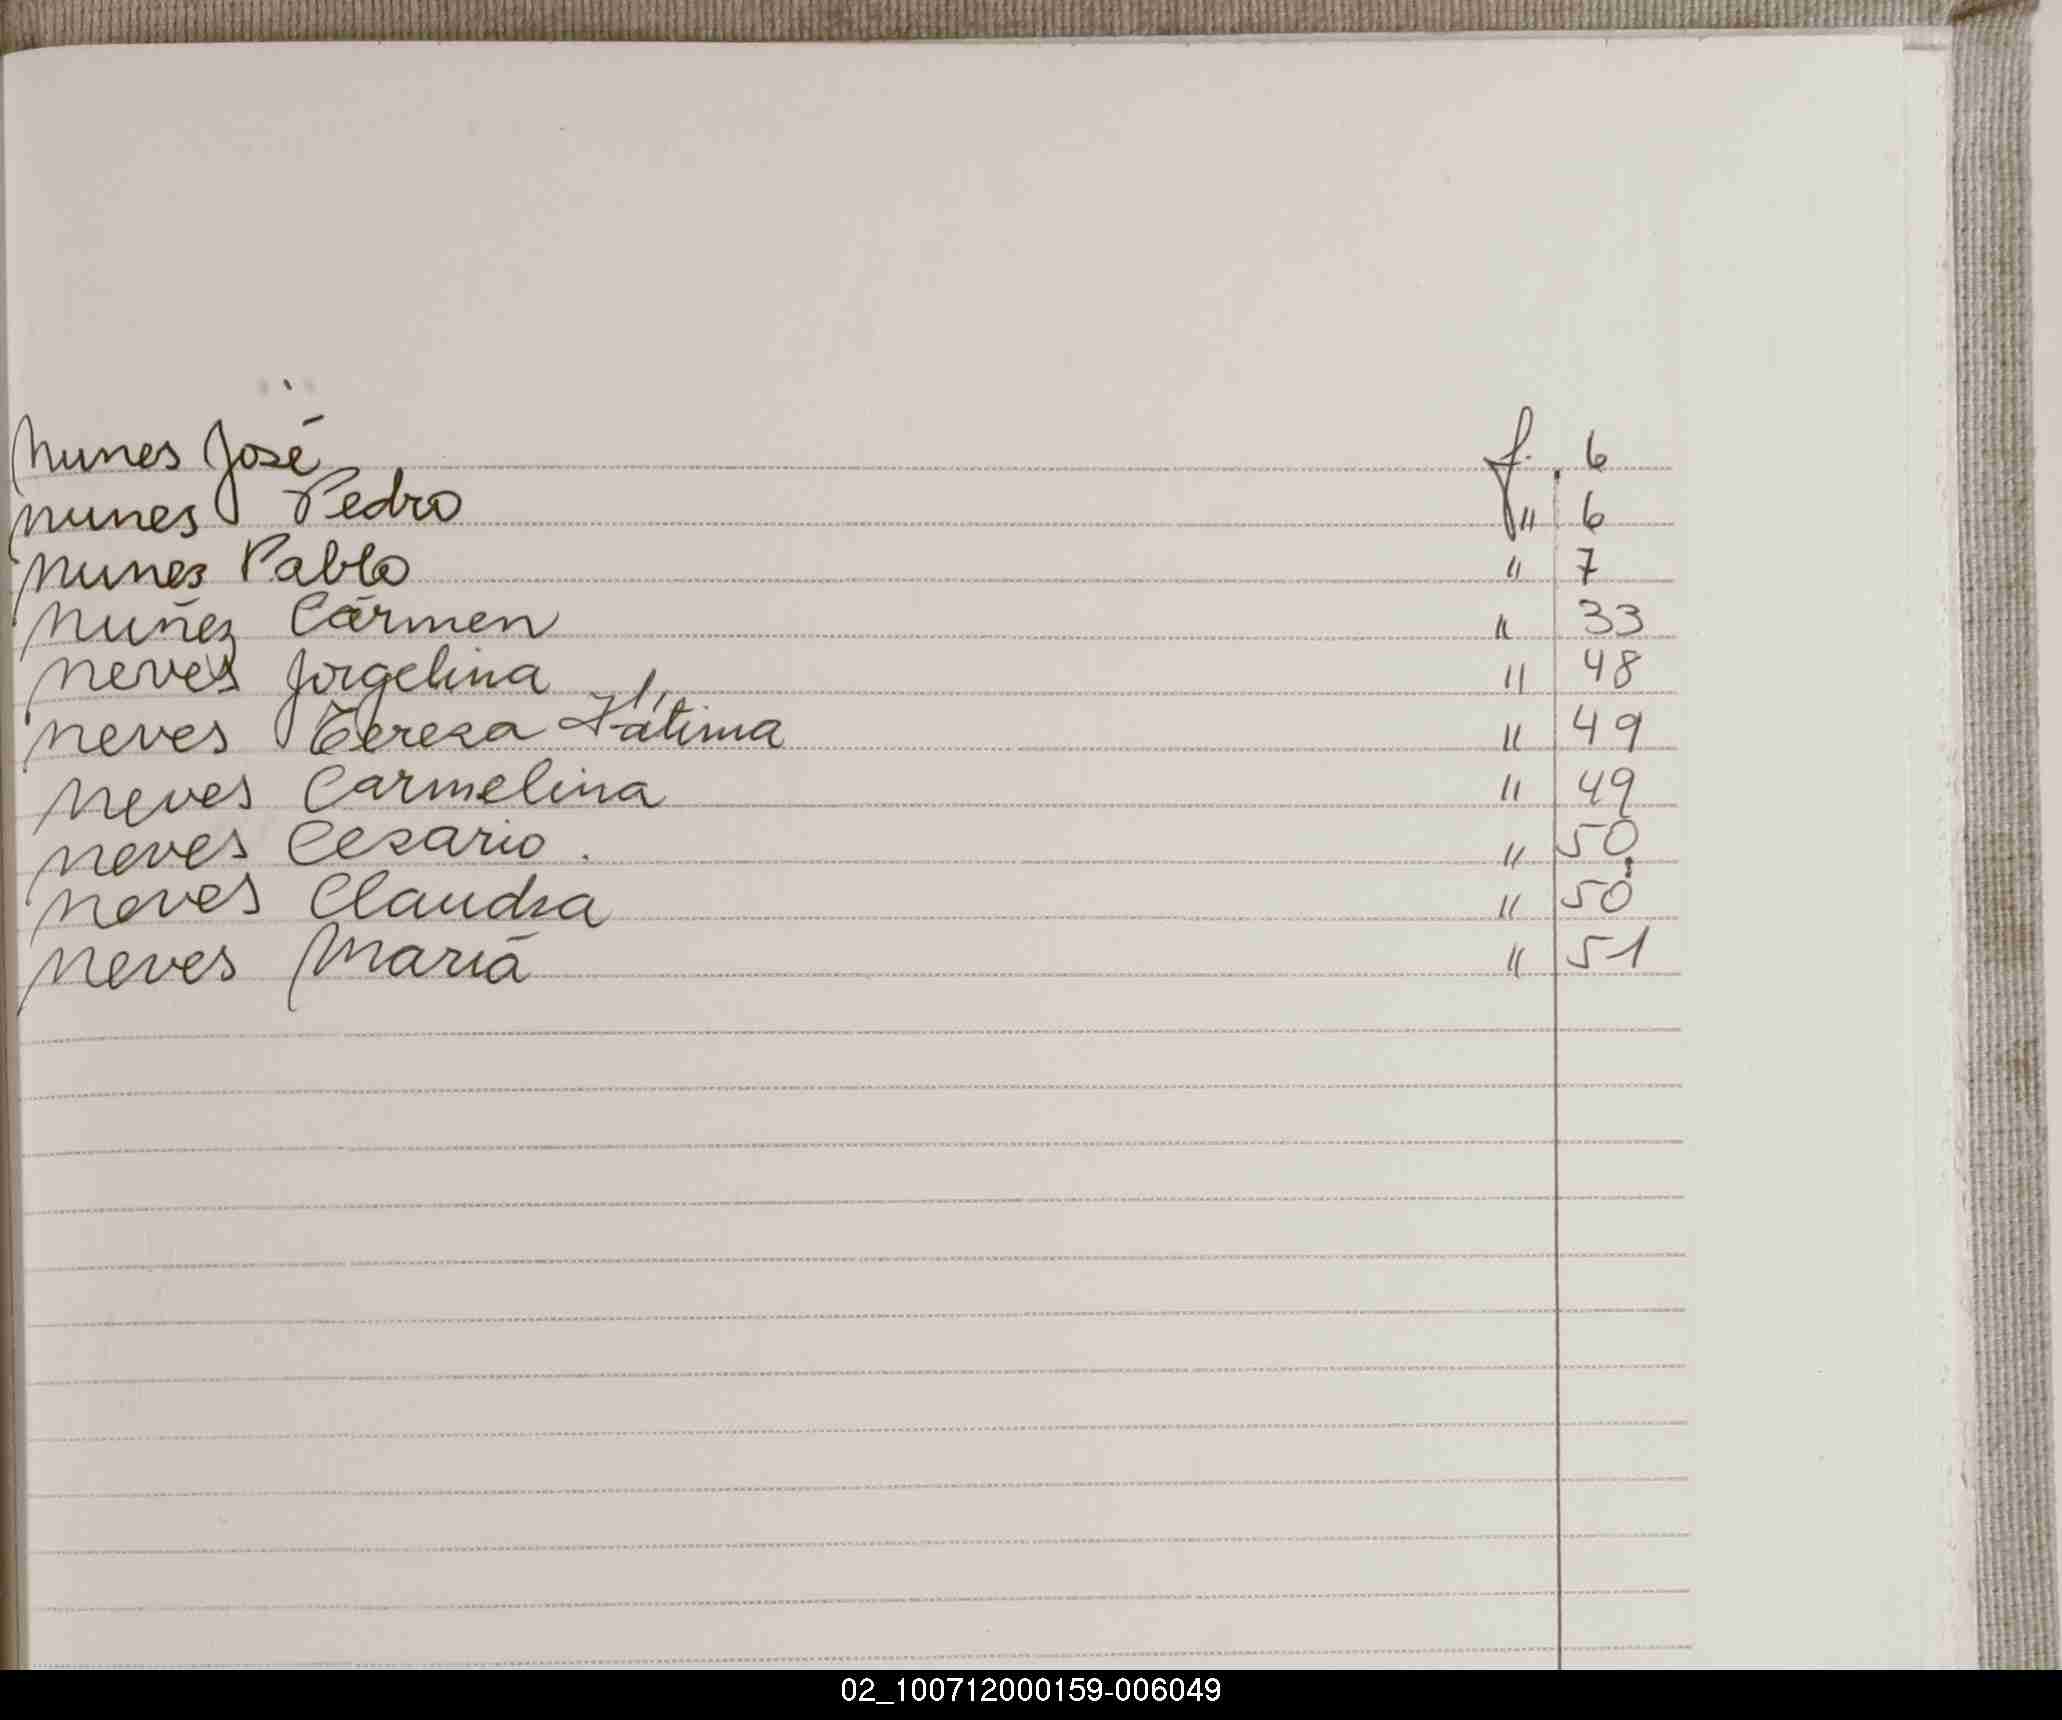 Nunes José f. 6
Nunes Pedro " 6
Nunes Pablo " 7
Nuñez Cármen " 33
Neves Jorgelina " 48
Neves Tereza Fátima " 49
Neves Carmelina " 49
Neves Cesario. " 50
Neves Claudia " 50
Neves María " 51
02_100712000159-006049